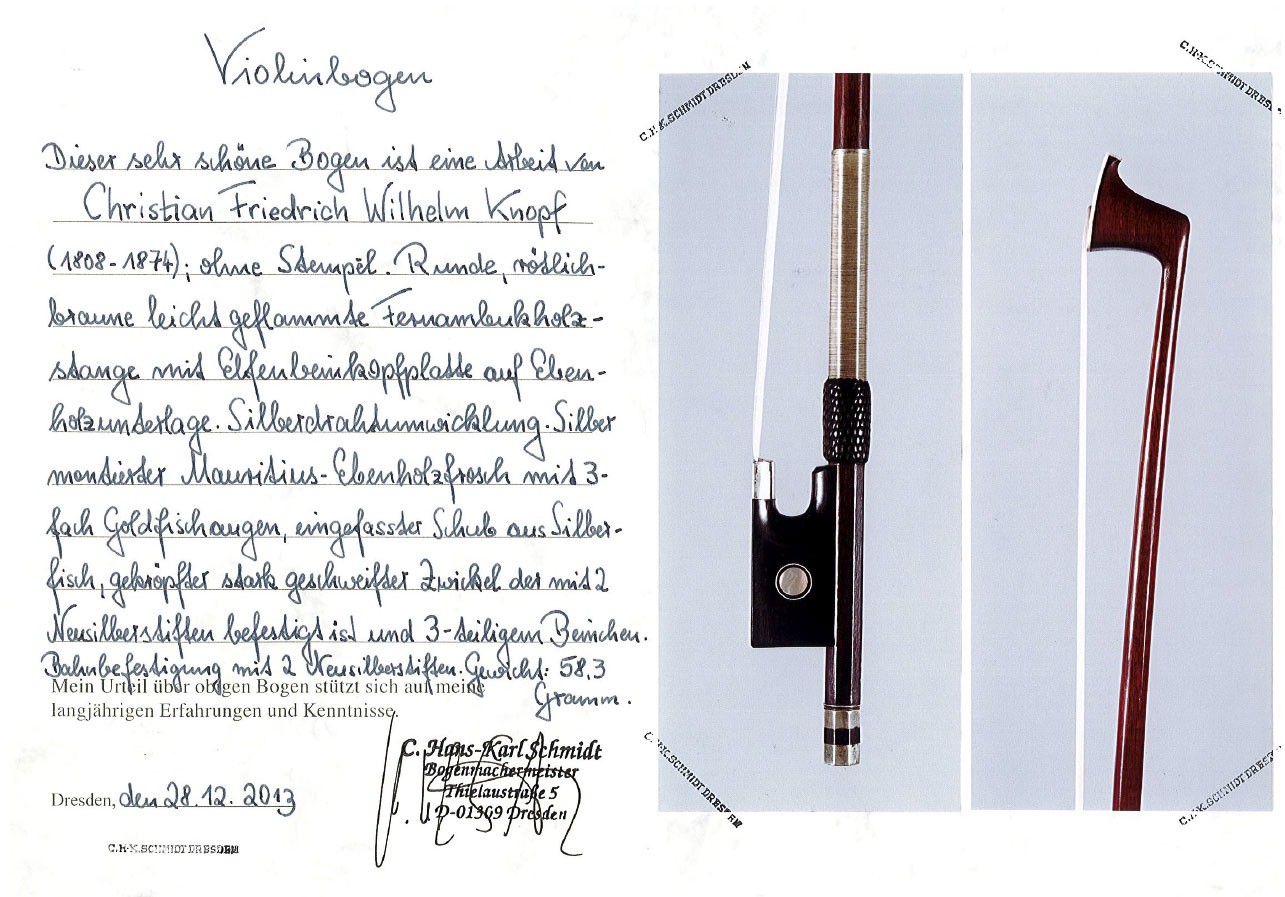 Violinbogen
Dieser sehr schöne Bogen ist eine Arbeit von
Christian Friedrich Wilhelm Knopf
(1808-1874); ohne Stempel. Runde, rötlich-
braune leicht geflammte Fernambukholz-
stange mit Elfenbeinkopfplatte auf Eben-
holzunterlage. Silberdrahtumwicklung. Silber
montierter Mauritius-Ebenholzfrosch mit 3-
fach Goldfischaugen, eingefasster Schub aus Silber-
fisch, gekröpfter stark geschweifter Zwickel der mit 2
Neusilberstiften befestigt ist und 3-teiligem Beinchen.
Bahnbefestigung mit 2 Neusilberstiften. Gewicht: 58,3
Gramm.
Mein Urteil über obigen Bogen stützt sich auf meine
langjährigen Erfahrungen und Kenntnisse.
C. Hans-Karl Schmidt
Bogenmachermeister
Thielaustraße 5
D-01309 Dresden
Dresden, den 28.12.2013
C.H-K.SCHMIDT DRESDEN
C.H-K.SCHMIDT DRESDEN
C.H-K.SCHMIDT DRESDEN
C.H-K.SCHMIDT DRESDEN
C.H-K.SCHMIDT DRESDEN